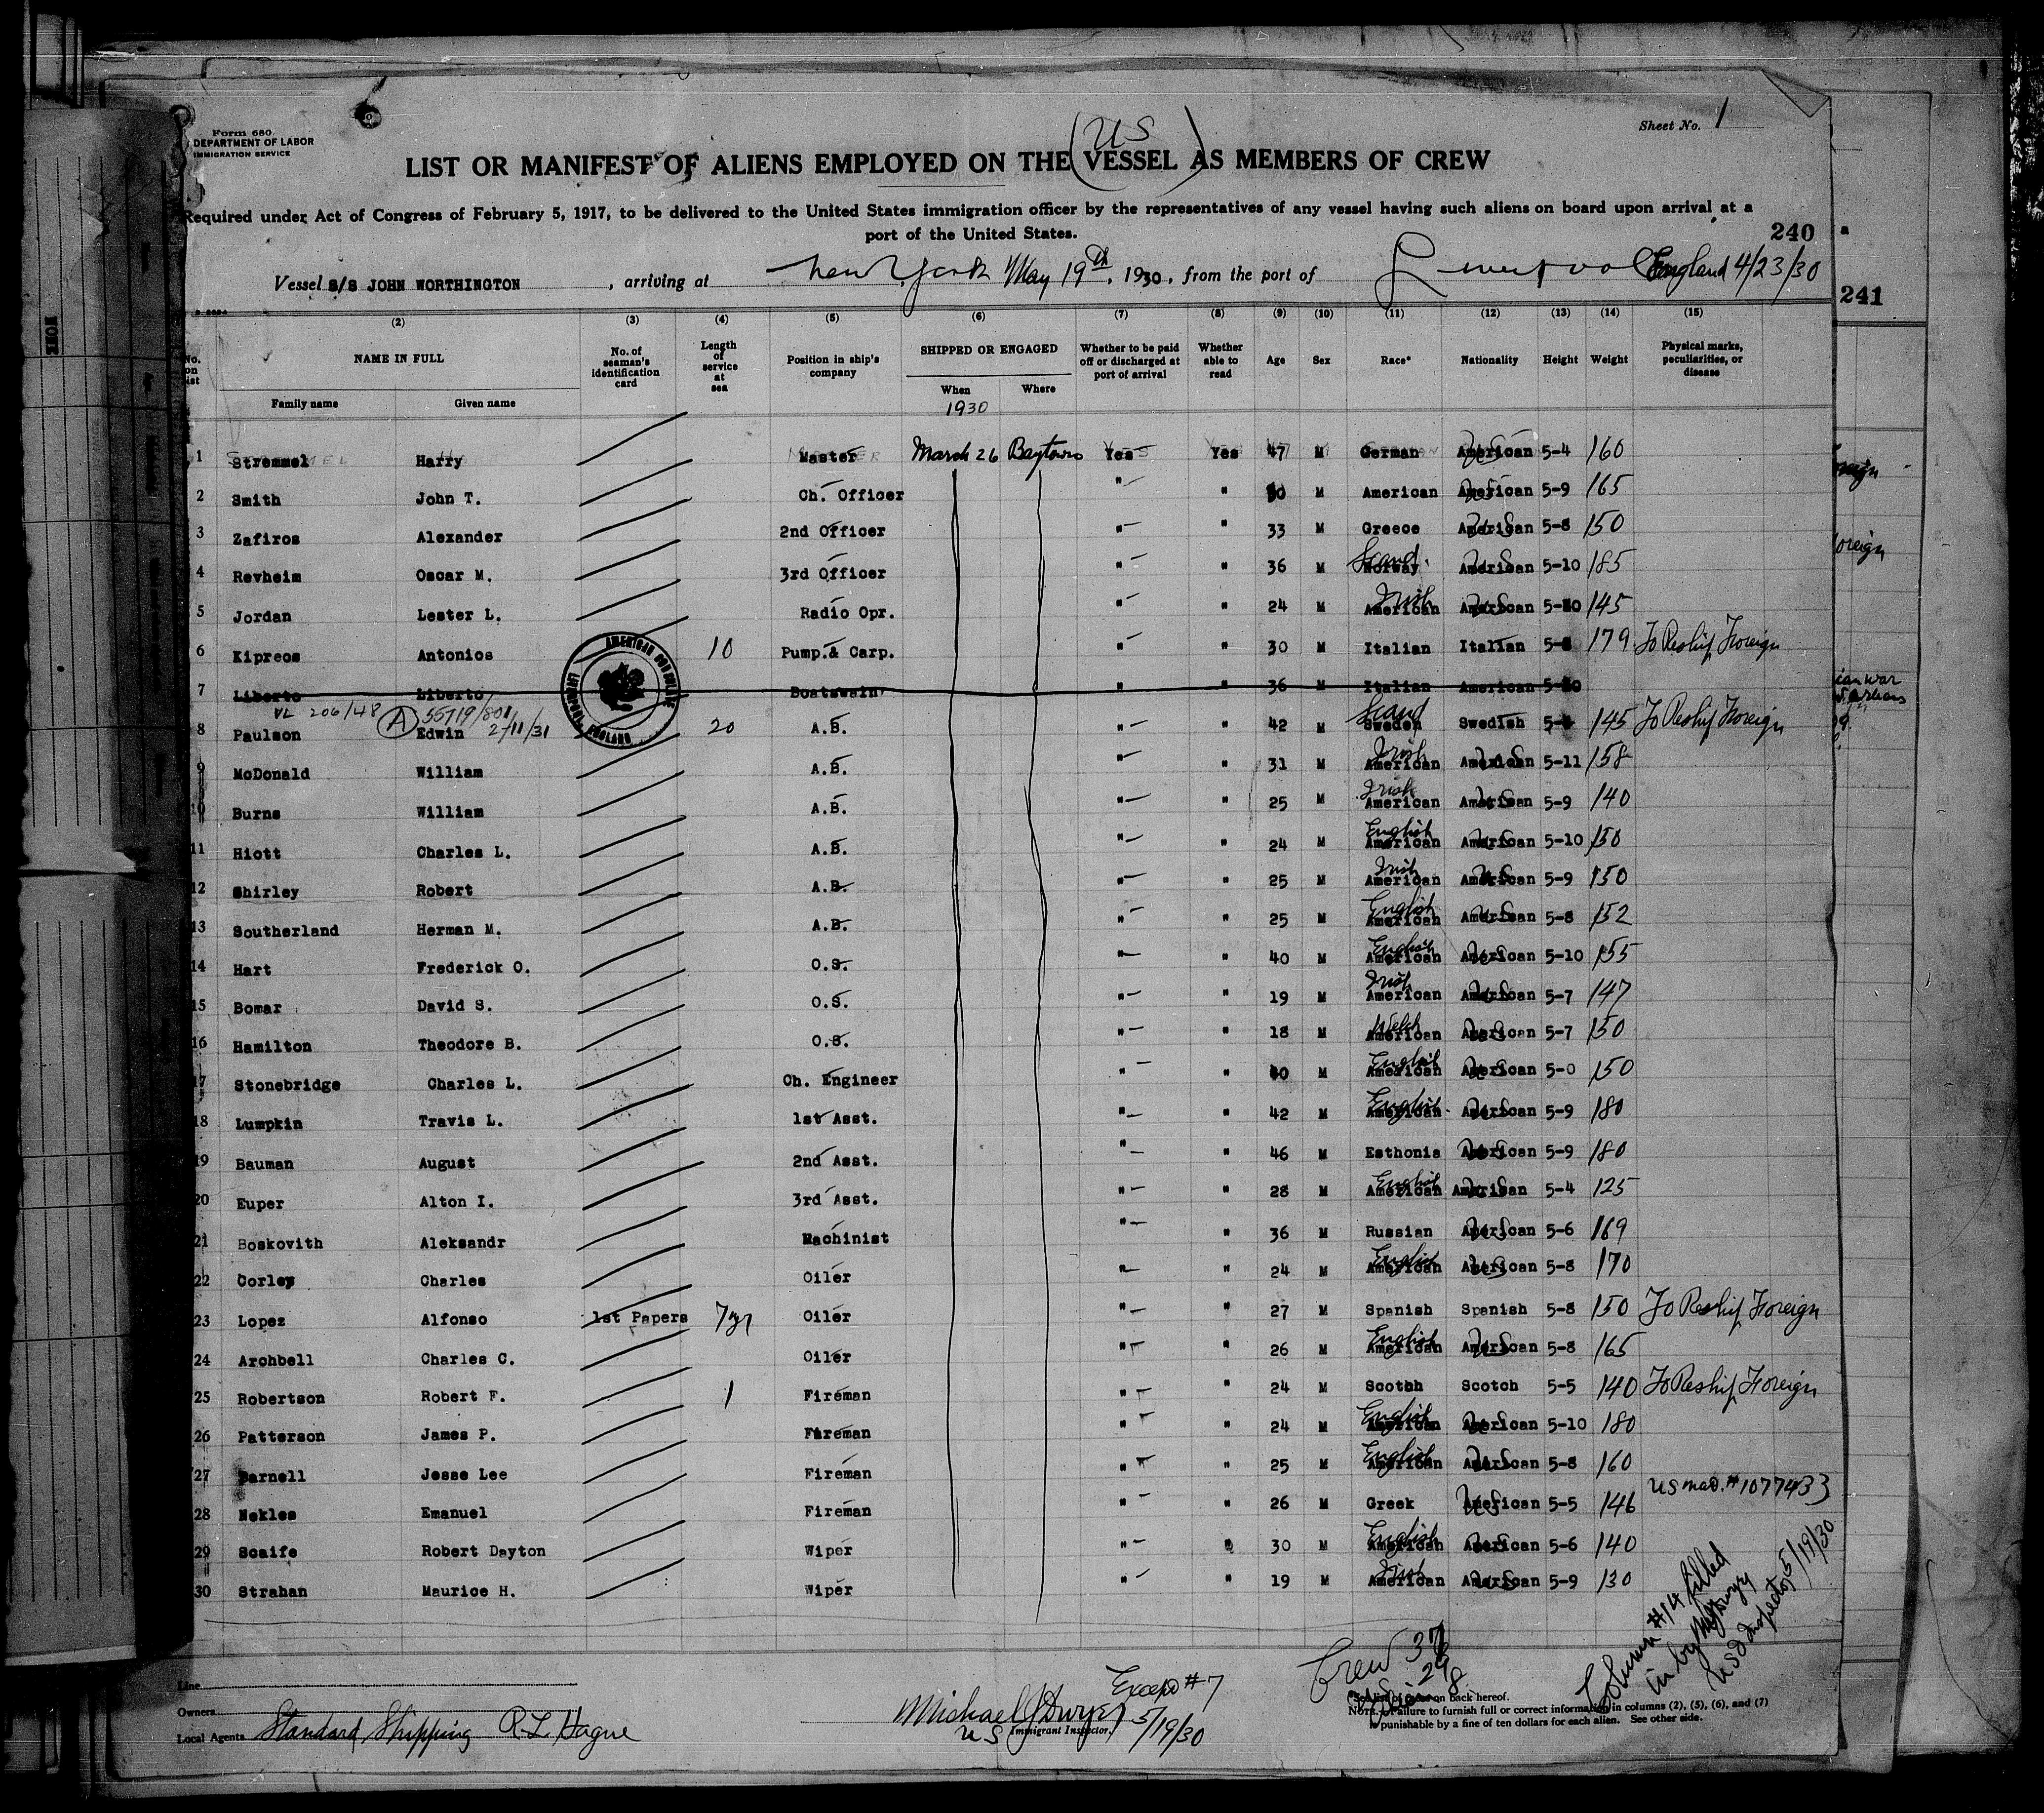 Form 680
DEPARTMENT OF LABOR
IMMIGRATION SERVICE
Sheet No. 1
(US)
LIST OR MANIFEST OF ALIENS EMPLOYED ON THE VESSEL AS MEMBERS OF CREW
Required under Act of Congress of February 5, 1917, to be delivered to the United States immigration officer by the representatives of any vessel having such aliens on board upon arrival at a
port of the United States.
240
Vessel S/S JOHN WORTHINGTON, arriving at New York May 19th, 1930, from the port of Liverpool England 4/23/30
241
(2) (3) (4) (5) (6) (7) (8) (9) (10) (11) (12) (13) (14) (15)
No. on list
NAME IN FULL
Family name Given name
No. of seaman's identification card
Length of service at sea
Position in ship's company
SHIPPED OR ENGAGED
When Where
1930
Whether to be paid off or discharged at port of arrival
Whether able to read
Age Sex Race* Nationality Height Weight
Physical marks, peculiarities, or disease
1 Stremmel Harry Master March 26 Baytown Yes Yes 47 M German American US 5-4 160
2 Smith John T. Ch. Officer " " M American American US 5-9 165
3 Zafiros Alexander 2nd Officer " " 33 M Greece American US 5-8 150
4 Revheim Oscar M. 3rd Officer " " 36 M Norway Scand. American US 5-10 185
5 Jordan Lester L. Radio Opr. " " 24 M American Irish American US 145
6 Kipreos Antonios 10 Pump.& Carp. " " 30 M Italian Italian 179 To Reship Foreign
7 Liberto Liberto Boatswain 36 M Italian American
VL 206/48 (A) 55719/801 2/11/31
8 Paulson Edwin 20 A.B. " " 42 M Sweden Scand Swedish 145 To Reship Foreign
AMERICAN CONSULATE LIVERPOOL ENGLAND
9 McDonald William A.B. " " 31 M American Irish American US 5-11 158
10 Burns William A.B. " " 25 M American Irish American US 5-9 140
11 Hiott Charles L. A.B. " " 24 M American English American US 5-10 150
12 Shirley Robert A.B. " " 25 M American Irish American US 5-9 150
13 Southerland Herman M. A.B. " " 25 M American English American US 5-8 152
14 Hart Frederick O. O.S. " " 40 M American English American US 5-10 155
15 Bomar David S. O.S. " " 19 M American Irish American US 5-7 147
16 Hamilton Theodore B. O.S. " " 18 M American Welsh American US 5-7 150
17 Stonebridge Charles L. Ch. Engineer " " M American English American US 5-0 150
18 Lumpkin Travis L. 1st Asst. " " 42 M American English American US 5-9 180
19 Bauman August 2nd Asst. " " 46 M Esthonia American US 5-9 180
20 Euper Alton I. 3rd Asst. " " 28 M American English American US 5-4 125
21 Boskovith Aleksandr Machinist " " 36 M Russian American US 5-6 169
22 Corley Charles Oiler " " 24 M American English American US 5-8 170
23 Lopez Alfonso 1st Papers 7 yr Oiler " " 27 M Spanish Spanish 5-8 150 To Reship Foreign
24 Archbell Charles C. Oiler " " 26 M American English American US 5-8 165
25 Robertson Robert F. 1 Fireman " " 24 M Scotch Scotch 5-5 140 To Reship Foreign
26 Patterson James P. Fireman " " 24 M American English American US 5-10 180
27 Parnell Jesse Lee Fireman " " 25 M American English American US 5-8 160
28 Nekles Emanuel Fireman " " 26 M Greek American US 5-5 146 US nad. #1077433
29 Scaife Robert Dayton Wiper " " 30 M American English American US 5-6 140
30 Strahan Maurice H. Wiper " " 19 M American Irish American US 5-9 130
Column #14 filled
in by
US Inspector 5/19/30
Crew
Line
Owners
Local Agents Standard Shipping R.L. Hague
Except #7
Michael J Dwyer 5/19/30
US Immigrant Inspector.
*See list of races on back hereof.
NOTE.—Failure to furnish full or correct information in columns (2), (5), (6), and (7)
is punishable by a fine of ten dollars for each alien. See other side.